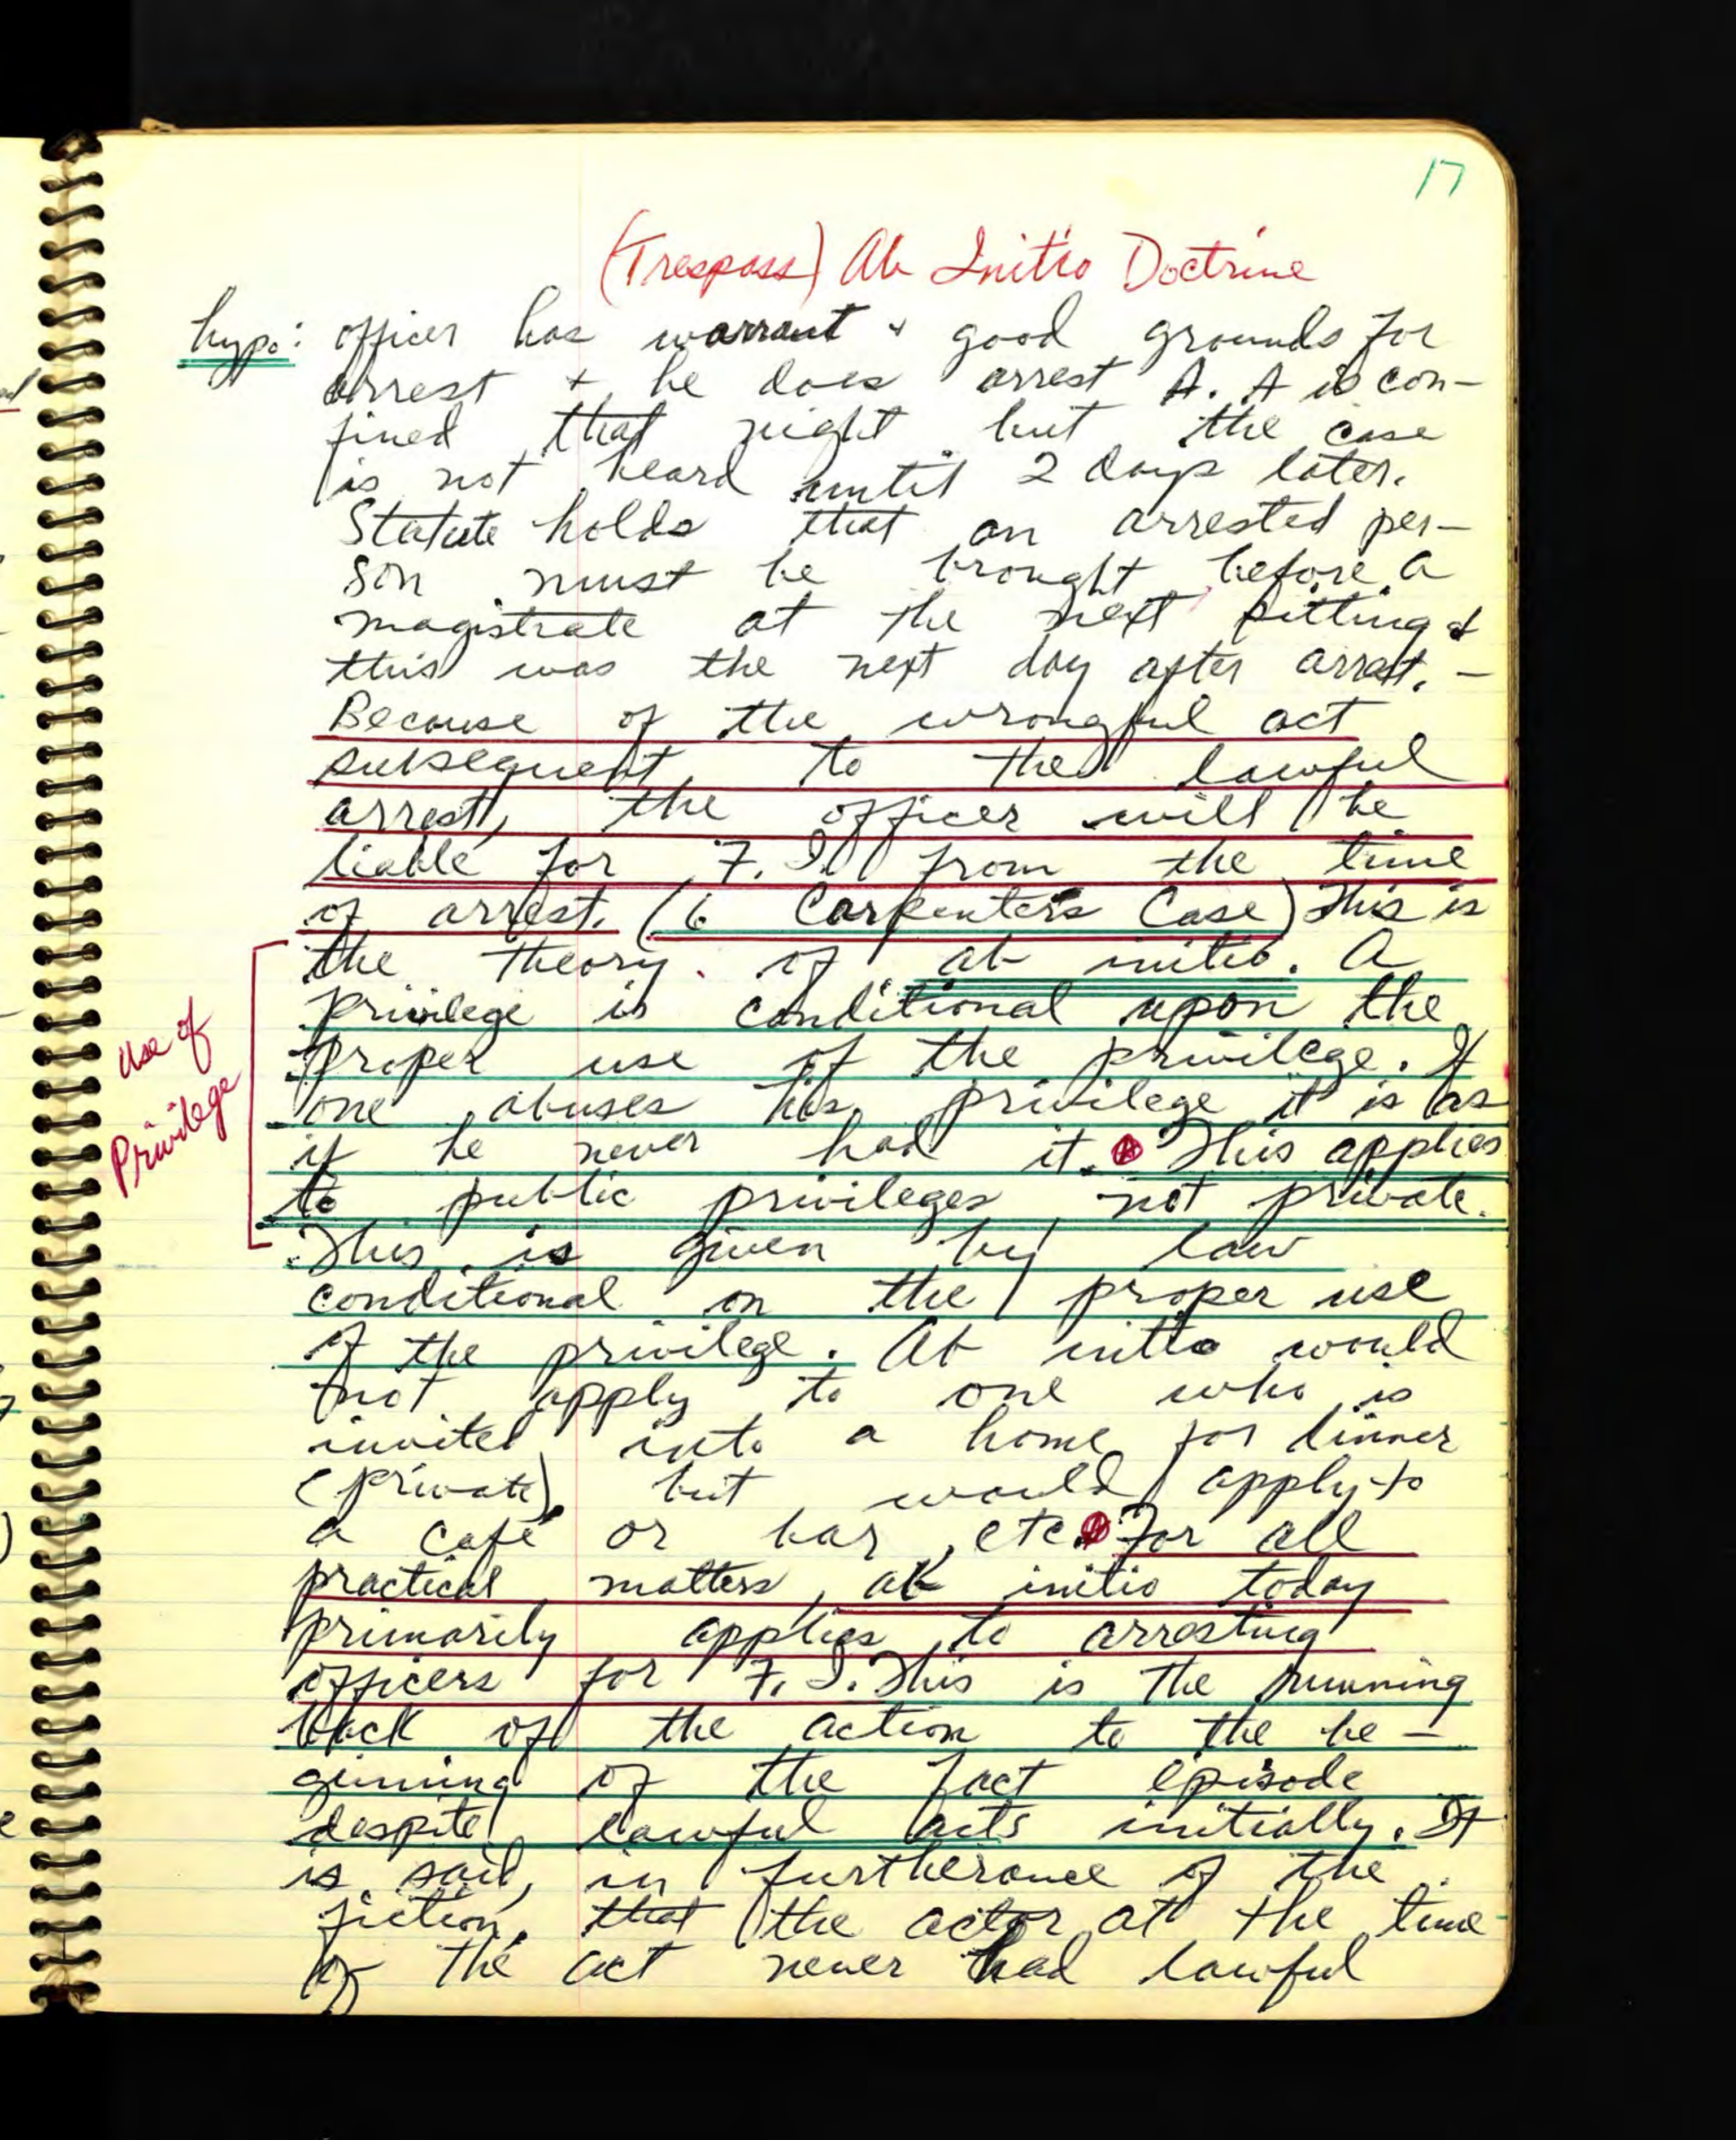 17
(Trespass) Ab Initio Doctrine
hypo: officer has warrant & good grounds for
arrest & he does arrest A. A is con-
fined that night but the case
is not heard until 2 days later.
Statute holds that an arrested per-
son must be brought before a
magistrate at the next sitting &
this was the next day after arrest. -
Because of the wrongful act
subsequent to the lawful
arrest, the officer will be
liable for F. I. from the time
of arrest. (6 Carpenter's Case) This is
the theory of ab initio. A
privilege is conditional upon the
proper use of the privilege. If
one abuses his privilege it is as
if he never had it. This applies
to public privileges not private.
This is given by law
conditional on the proper use
of the privilege. Ab initio would
not apply to one who is
invited into a home for dinner
(private), but would apply to
a café or bar, etc. For all
practical matters, ab initio today
primarily applies to arresting
officers for F. I. This is the running
back of the action to the be-
ginning of the fact episode
despite lawful acts initially. It
is said, in furtherance of the
fiction, that the actor at the time
of the act never had lawful
Use of
Privilege